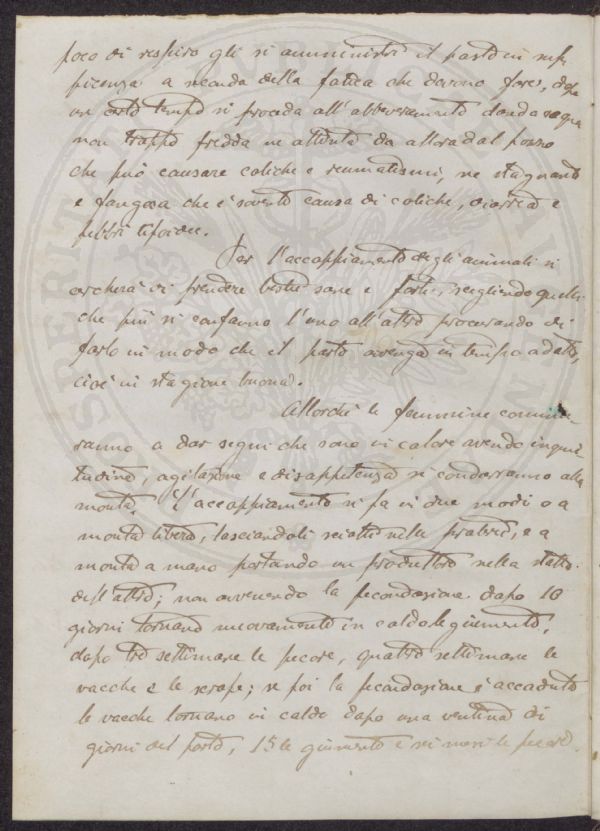 poco di respiro gli si amministri il pasto in suf-
ficenza a seconda della fatica che devono fare, dopo
un certo tempo si proceda all'abbeveramento dando acqua
non troppo fredda ne attinta da allora dal pozzo
che può causare coliche e reumatismi, ne stagnante
e fangosa che è sovente causa di coliche, diarrea e
febbri tifoidee.
Per l'accoppiamento degli animali si
cercherà di prendere bestie sane e forti, scegliendo quelle
che più si confanno l'uno all'altro procurando di
farlo in modo che il parto avenga in tempo adatto,
cioè in stagione buona.
Allorchè le femmine comin-
ranno a dar segni che sono in calore avendo inquie-
tudine, agitazione e disappetenza si condurranno alla
monta. L'accoppiamento si fa in due modi o a
monta libera, lasciandoli sciolti nelle praterie, e a
monta a mano portando un produttore nella stalla
dell'altro; non avvenendo la fecondazione dopo 10
giorni tornano nuovamente in caldo le giumente,
dopo tre settimane le pecore, quattro settimane le
vacche e le scrofe; se poi la fecondazione è accaduta
le vacche tornano in caldo dopo una ventina di
giorni del parto, 15 le giumente e sei mesi le pecore.
SPERITAT